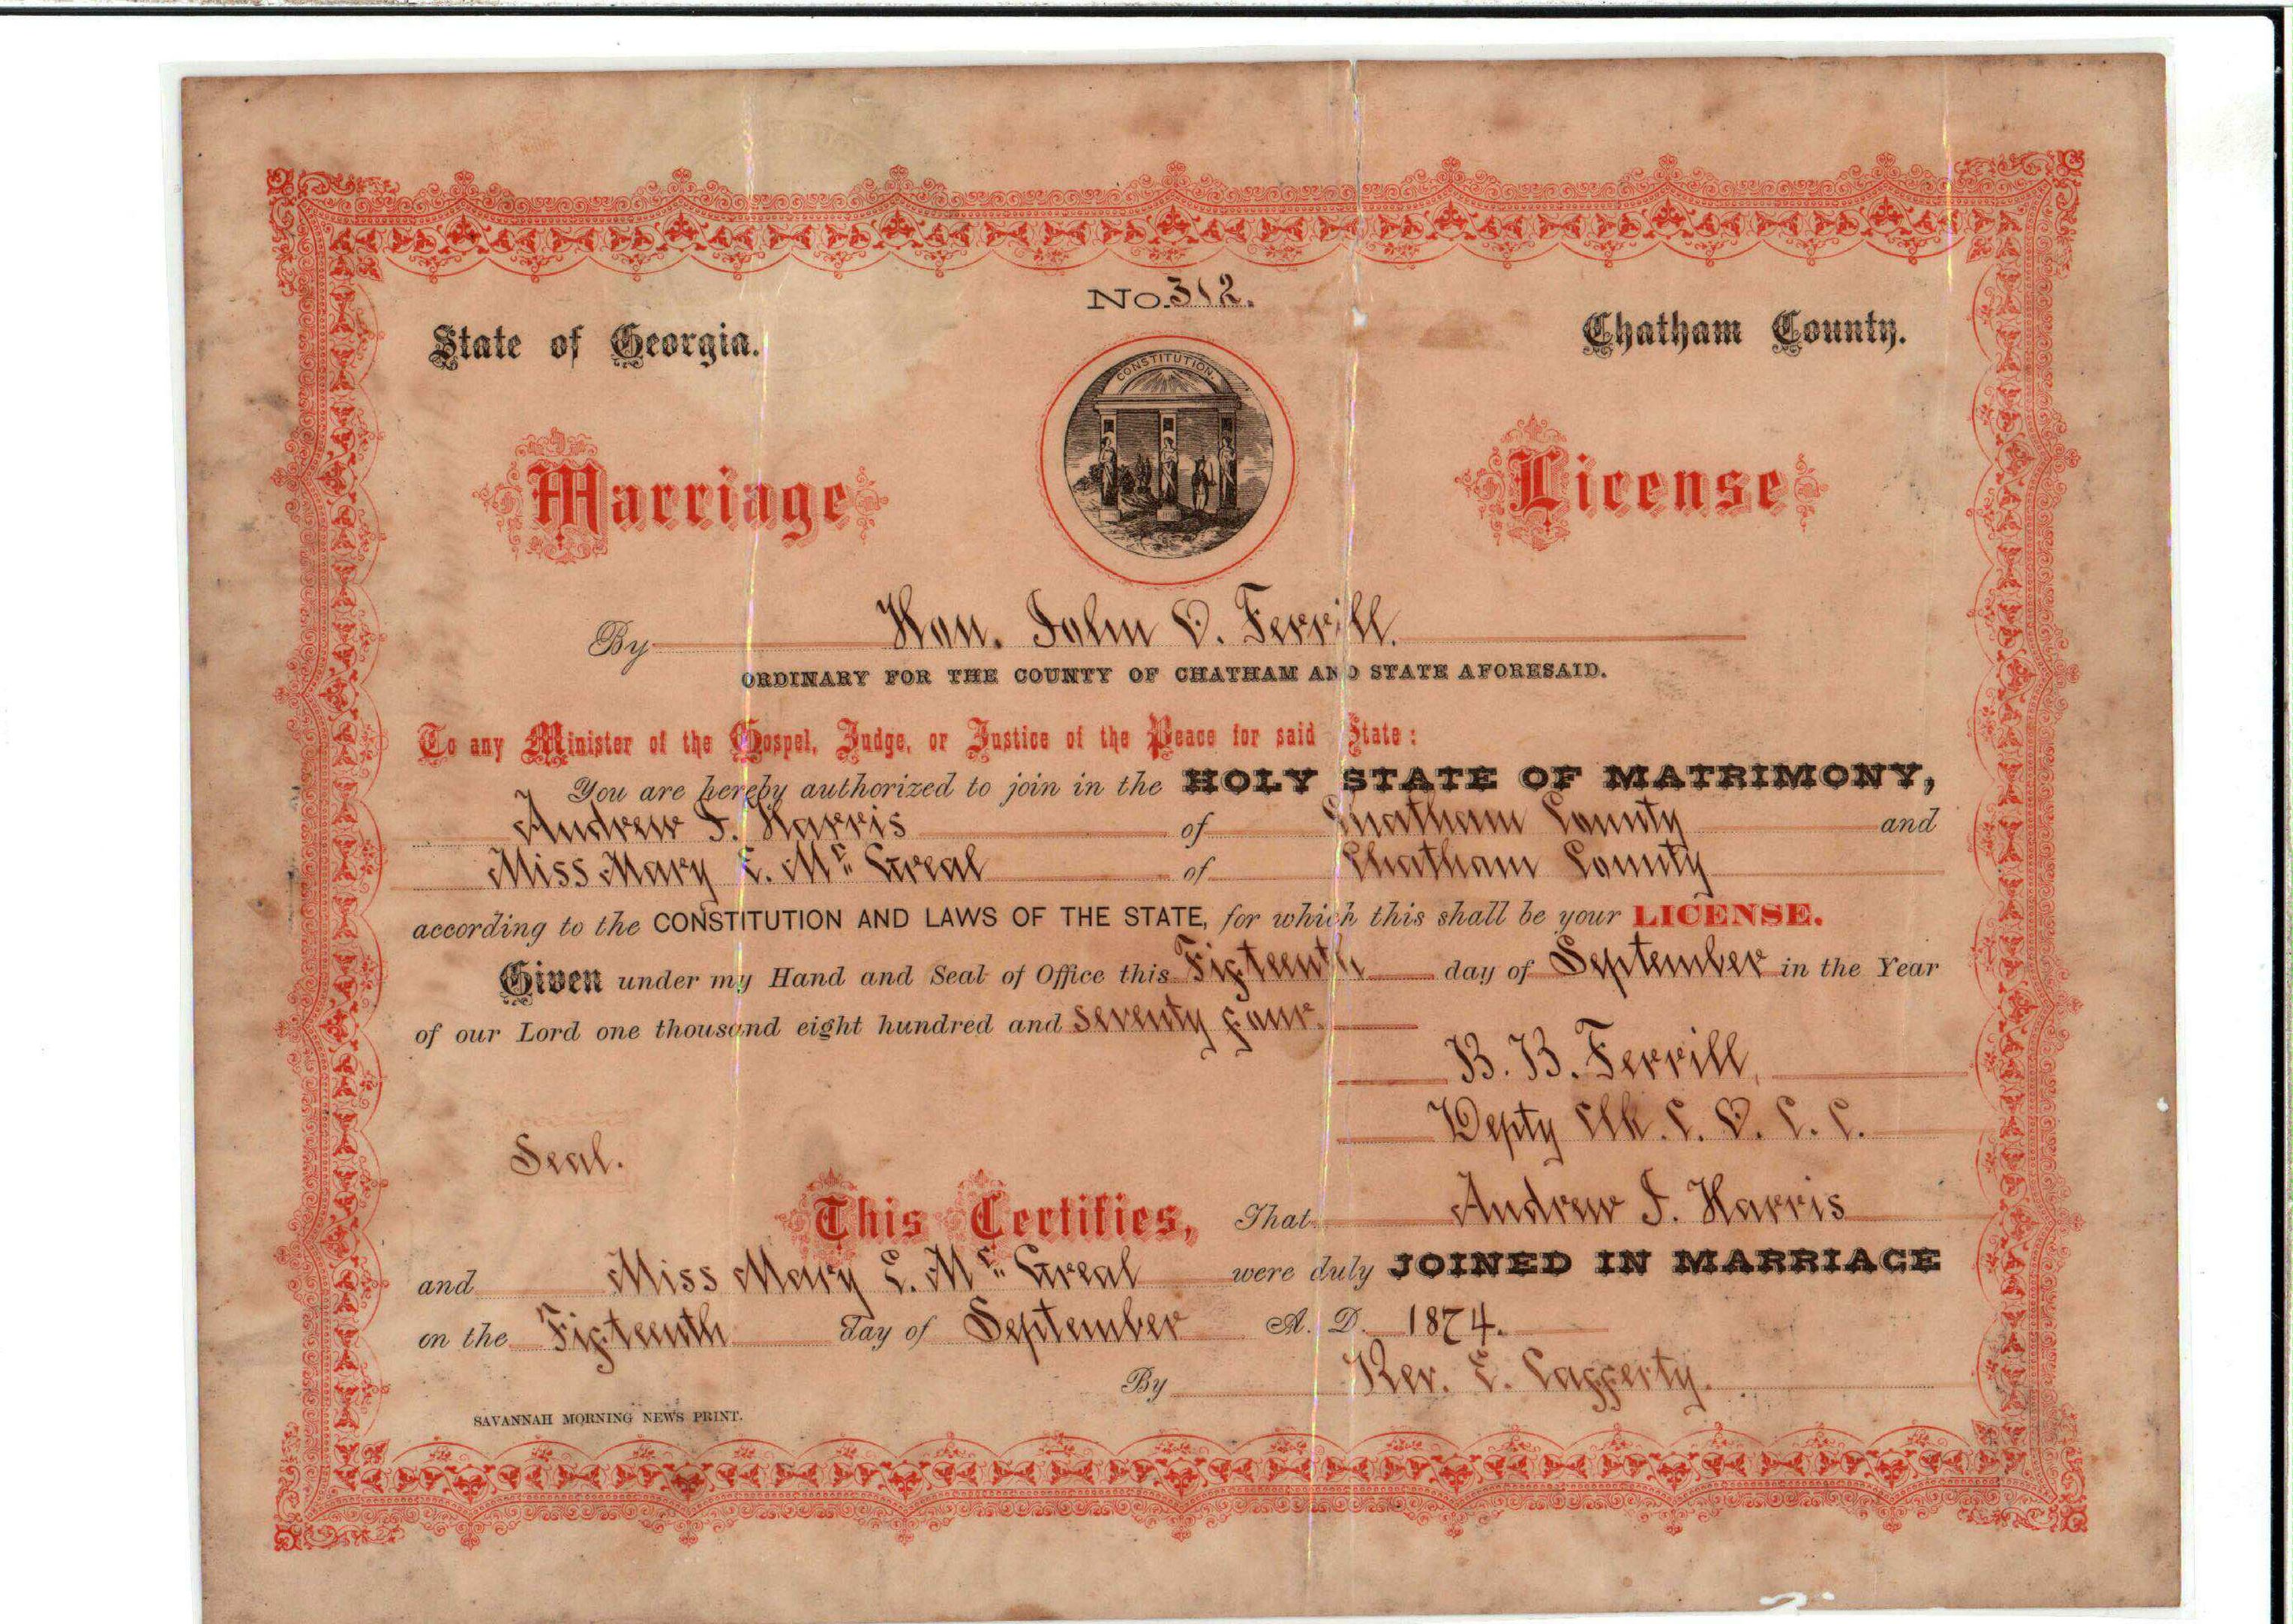 No. 312.
State of Georgia.
Chatham County.
CONSTITUTION.
Marriage License
By Hon. John O. Ferrill.
ORDINARY FOR THE COUNTY OF CHATHAM AND STATE AFORESAID.
To any Minister of the Gospel, Judge, or Justice of the Peace for said State:
You are hereby authorized to join in the HOLY STATE OF MATRIMONY,
Andrew F. Harris of Chatham County and
Miss Mary E. Mc. Greal of Chatham County
according to the CONSTITUTION AND LAWS OF THE STATE, for which this shall be your LICENSE.
Given under my Hand and Seal of Office this Fifteenth day of September in the Year
of our Lord one thousand eight hundred and seventy four.
B. B. Ferrill,
Depty Clk. C. O. C. C.
Seal.
This Certifies, That Andrew F. Harris
and Miss Mary E. Mc. Greal were duly JOINED IN MARRIAGE
on the Fifteenth day of September A. D. 1874.
By Rev. E. Cafferty.
SAVANNAH MORNING NEWS PRINT.